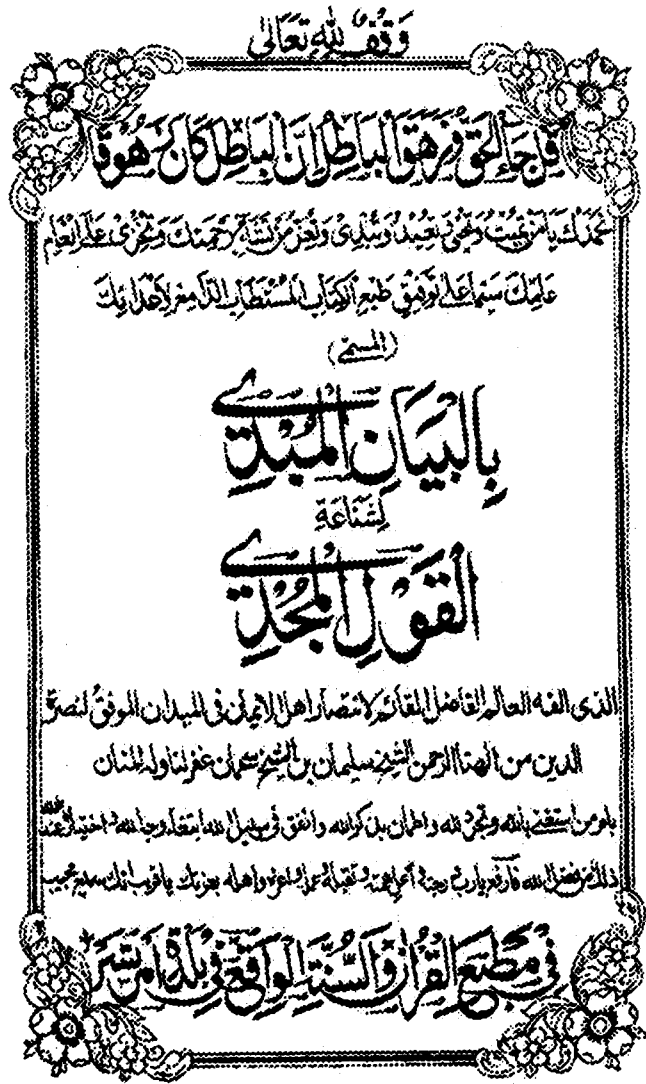 وقف لله تعالى
قل جاء الحق وزهق الباطل إن الباطل كان زهوقا
نحمدك يا من يميت ويحيى ويعيد ويبدى
عليك سيما على توفيق طبع الكتاب المستطاب الدامغ لاعدائك
(المسمى)
بالبيان المبدى
لشناعة
القول المجدى
الذى الفه العالم الفاضل القائم لانتصار اهل الايمان فى الميدان الموفق لنصرة
الدين من الهنا الرحمن الشيخ سليمان بن الشيخ سحمان غفر لنا وله المنان
بامر من استغنى بالله وتجرد لله واطمان بذكر الله وانفق فى سبيل الله ابتغاء وجه الله
ذلك من فضل الله فارفع يا رب درجته بعزتك يا قريب انك سميع مجيب
فى مطبع القرآن والسنة الواقع فى بلدة امرتسر